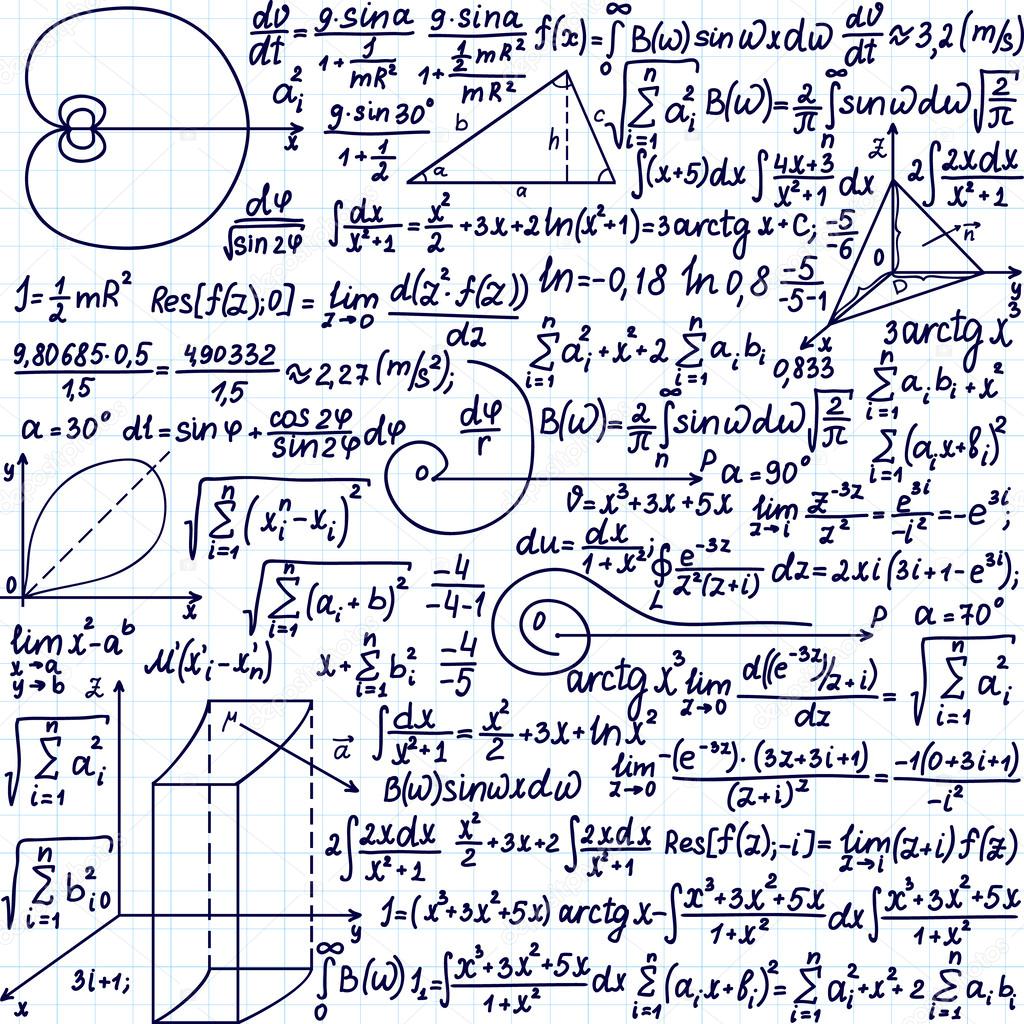 dv/dt = g·sinα/(1+1/mR²) g·sinα/(1+(1/2 mR²)/mR²) f(x)=∫₀^∞ B(ω) sin ωxdω dv/dt ≈3,2 (m/s)
a²ᵢ b c √(∑ᵢ₌₁ⁿ a²ᵢ) B(ω)=2/π ∫ₙ^∞ sinωdω√(2/π)
x g·sin30°/(1+1/2) h a a ∫(x+5)dx ∫(4x+3)/(x²+1) dx z 2∫2xdx/(x²+1)
dφ/√(sin2φ) ∫dx/(x²+1) = x²/2 +3x+2ln(x²+1)=3arctg x+C; -5/-6 0 n⃗
J=1/2 mR² Res[f(z);0] = lim z→0 d(z²·f(z))/dz ln=-0,18 ln0,8 -5/(-5-1) D y
9,80685·0,5/1,5 = 4,90332/1,5 ≈2,27(m/s²); ∑ᵢ₌₁ⁿ a²ᵢ+x²+2 ∑ᵢ₌₁ⁿ aᵢbᵢ 0,833 x 3arctg x³
∑ᵢ₌₁ⁿ aᵢbᵢ+x²
a=30° dl=sin φ + cos2φ/sin2φ dφ dφ/r B(ω)=2/π ∫ₙ^∞ sinωdω√(2/π) ∑ᵢ₌₁(aᵢx+bᵢ)²
y 0 P a=90°
√(∑ᵢ₌₁ⁿ (xᵢⁿ-xᵢ)²) ϑ=x³+3x+5x lim z→i z⁻³ᶻ/z² = e³ⁱ/-i² =-e³ⁱ;
du= dx/(1+x²); ∮L e⁻³ᶻ/(z²(z+i)) dz=2xi(3i+1-e³ⁱ);
0 x √(∑ᵢ₌₁ⁿ (aᵢ+b)²) -4/(-4-1) 0 P a=70°
lim x→a y→b x²-aᵇ M'(x'ᵢ-x'ₙ) x+∑ᵢ₌₁ⁿ b²ᵢ -4/-5 arctg x³ lim z→0 d((e⁻³ᶻ)/z+i)/dz = √(∑ᵢ₌₁ⁿ a²ᵢ)
z √(∑ᵢ₌₁ⁿ a²ᵢ) M a⃗ ∫dx/(x²+1) = x²/2 +3x+lnx²
B(ω)sinωxdω lim z→0 -(e⁻³ᶻ)·(3z+3i+1)/(z+i)² = -1(0+3i+1)/-i²
√(∑ᵢ₌₁ⁿ b²ᵢ₀) 2∫2xdx/(x²+1) x²/2 +3x+2∫2xdx/(x²+1) Res[f(z);-i]= lim z→i (z+i)f(z)
y J=(x³+3x²+5x) arctgx-∫(x³+3x²+5x)/(1+x²) dx∫(x³+3x²+5x)/(1+x²)
x 3i+1; ∫₀^∞ B(ω) J₁=∫(x³+3x²+5x)/(1+x²) dx ∑ᵢ₌₁ⁿ (aᵢx+bᵢ)²=∑ᵢ₌₁ⁿ a²ᵢ+x²+2 ∑ᵢ₌₁ⁿ aᵢbᵢ